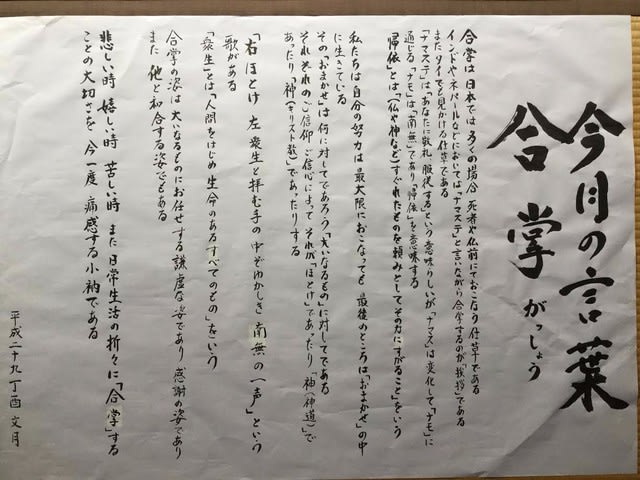 今月の言葉
合掌 がっしょう
合掌は日本では多くの場合 死者や仏前でおこなう仕草である
インドやネパールなどにおいては「ナマステ」と言いながら合掌するのが「挨拶」である
またタイでも見かける仕草である
「ナマステ」は「あなたに敬礼 服従するという意味らしいが「ナマス」は変化して「ナモ」に
通じる「ナモ」は「南無」であり「帰依」を意味する
「帰依」とは「(仏や神など)すぐれたものを頼みとしてその力にすがること」をいう
私たちは自分の努力は最大限におこなっても 最後のところは「おまかせ」の中
に生きている
その「おまかせ」は何に対してであろう「大いなるもの」に対してである
それぞれのご信仰 ご信心によって それが「ほとけ」であったり「神(神道)」で
あったり「神(キリスト教)」であったりする
「右ほとけ 左衆生と拝む手の中ぞゆかしき 南無の一声」という
歌がある
「衆生」とは「人間をはじめ生命のあるすべてのもの」をいう
合掌の姿は大いなるものにお任せする謙虚な姿であり 感謝の姿であり
また 他と和合する姿でもある
悲しい時 嬉しい時 苦しい時 また日常生活の折々に「合掌」する
ことの大切さを 今一度 痛感する小衲である
平成二十九丁酉 文月